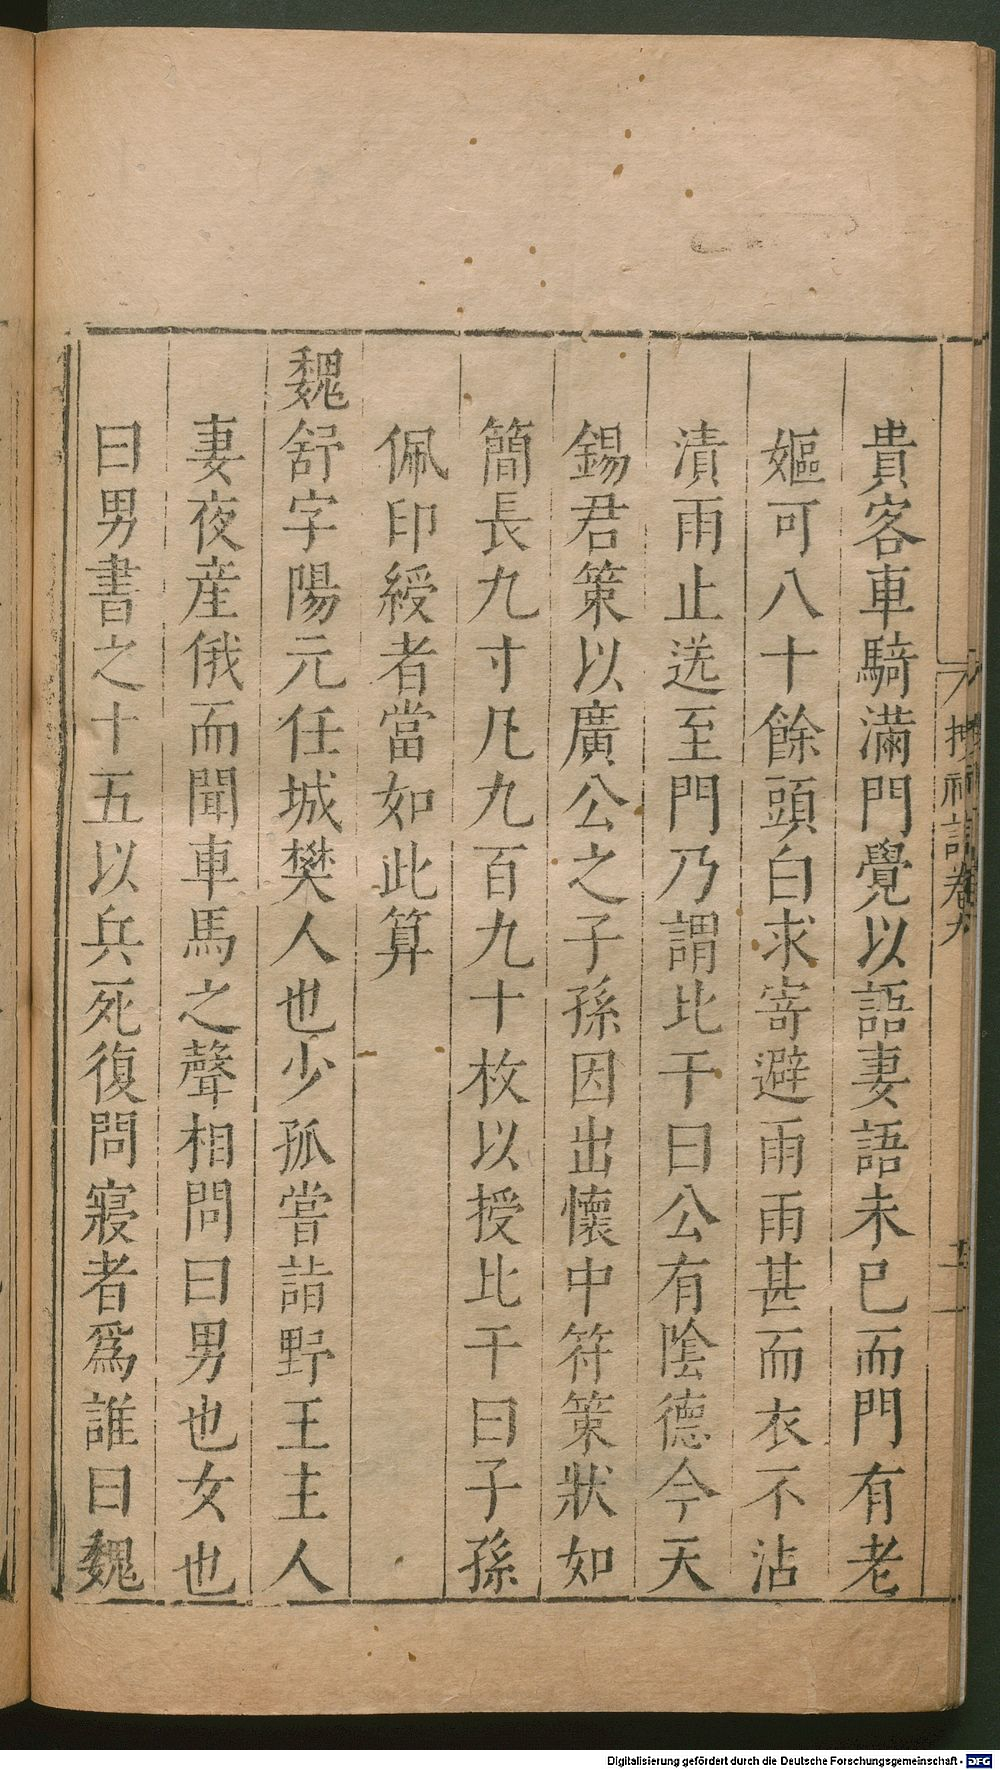 貴客車騎滿門覺以語妻語未已而門有老
嫗可八十餘頭白求寄避雨雨甚而衣不沾
漬雨止送至門乃謂比干曰公有陰德今天
錫君策以廣公之子孫因出懷中符策狀如
簡長九寸凡九百九十枚以授比干曰子孫
佩印綬者當如此算
魏舒字陽元任城樊人也少孤嘗詣野王主人
妻夜產俄而聞車馬之聲相問曰男也女也
曰男書之十五以兵死復問寢者爲誰曰魏
卷九
Digitalisierung gefördert durch die Deutsche Forschungsgemeinschaft - DFG